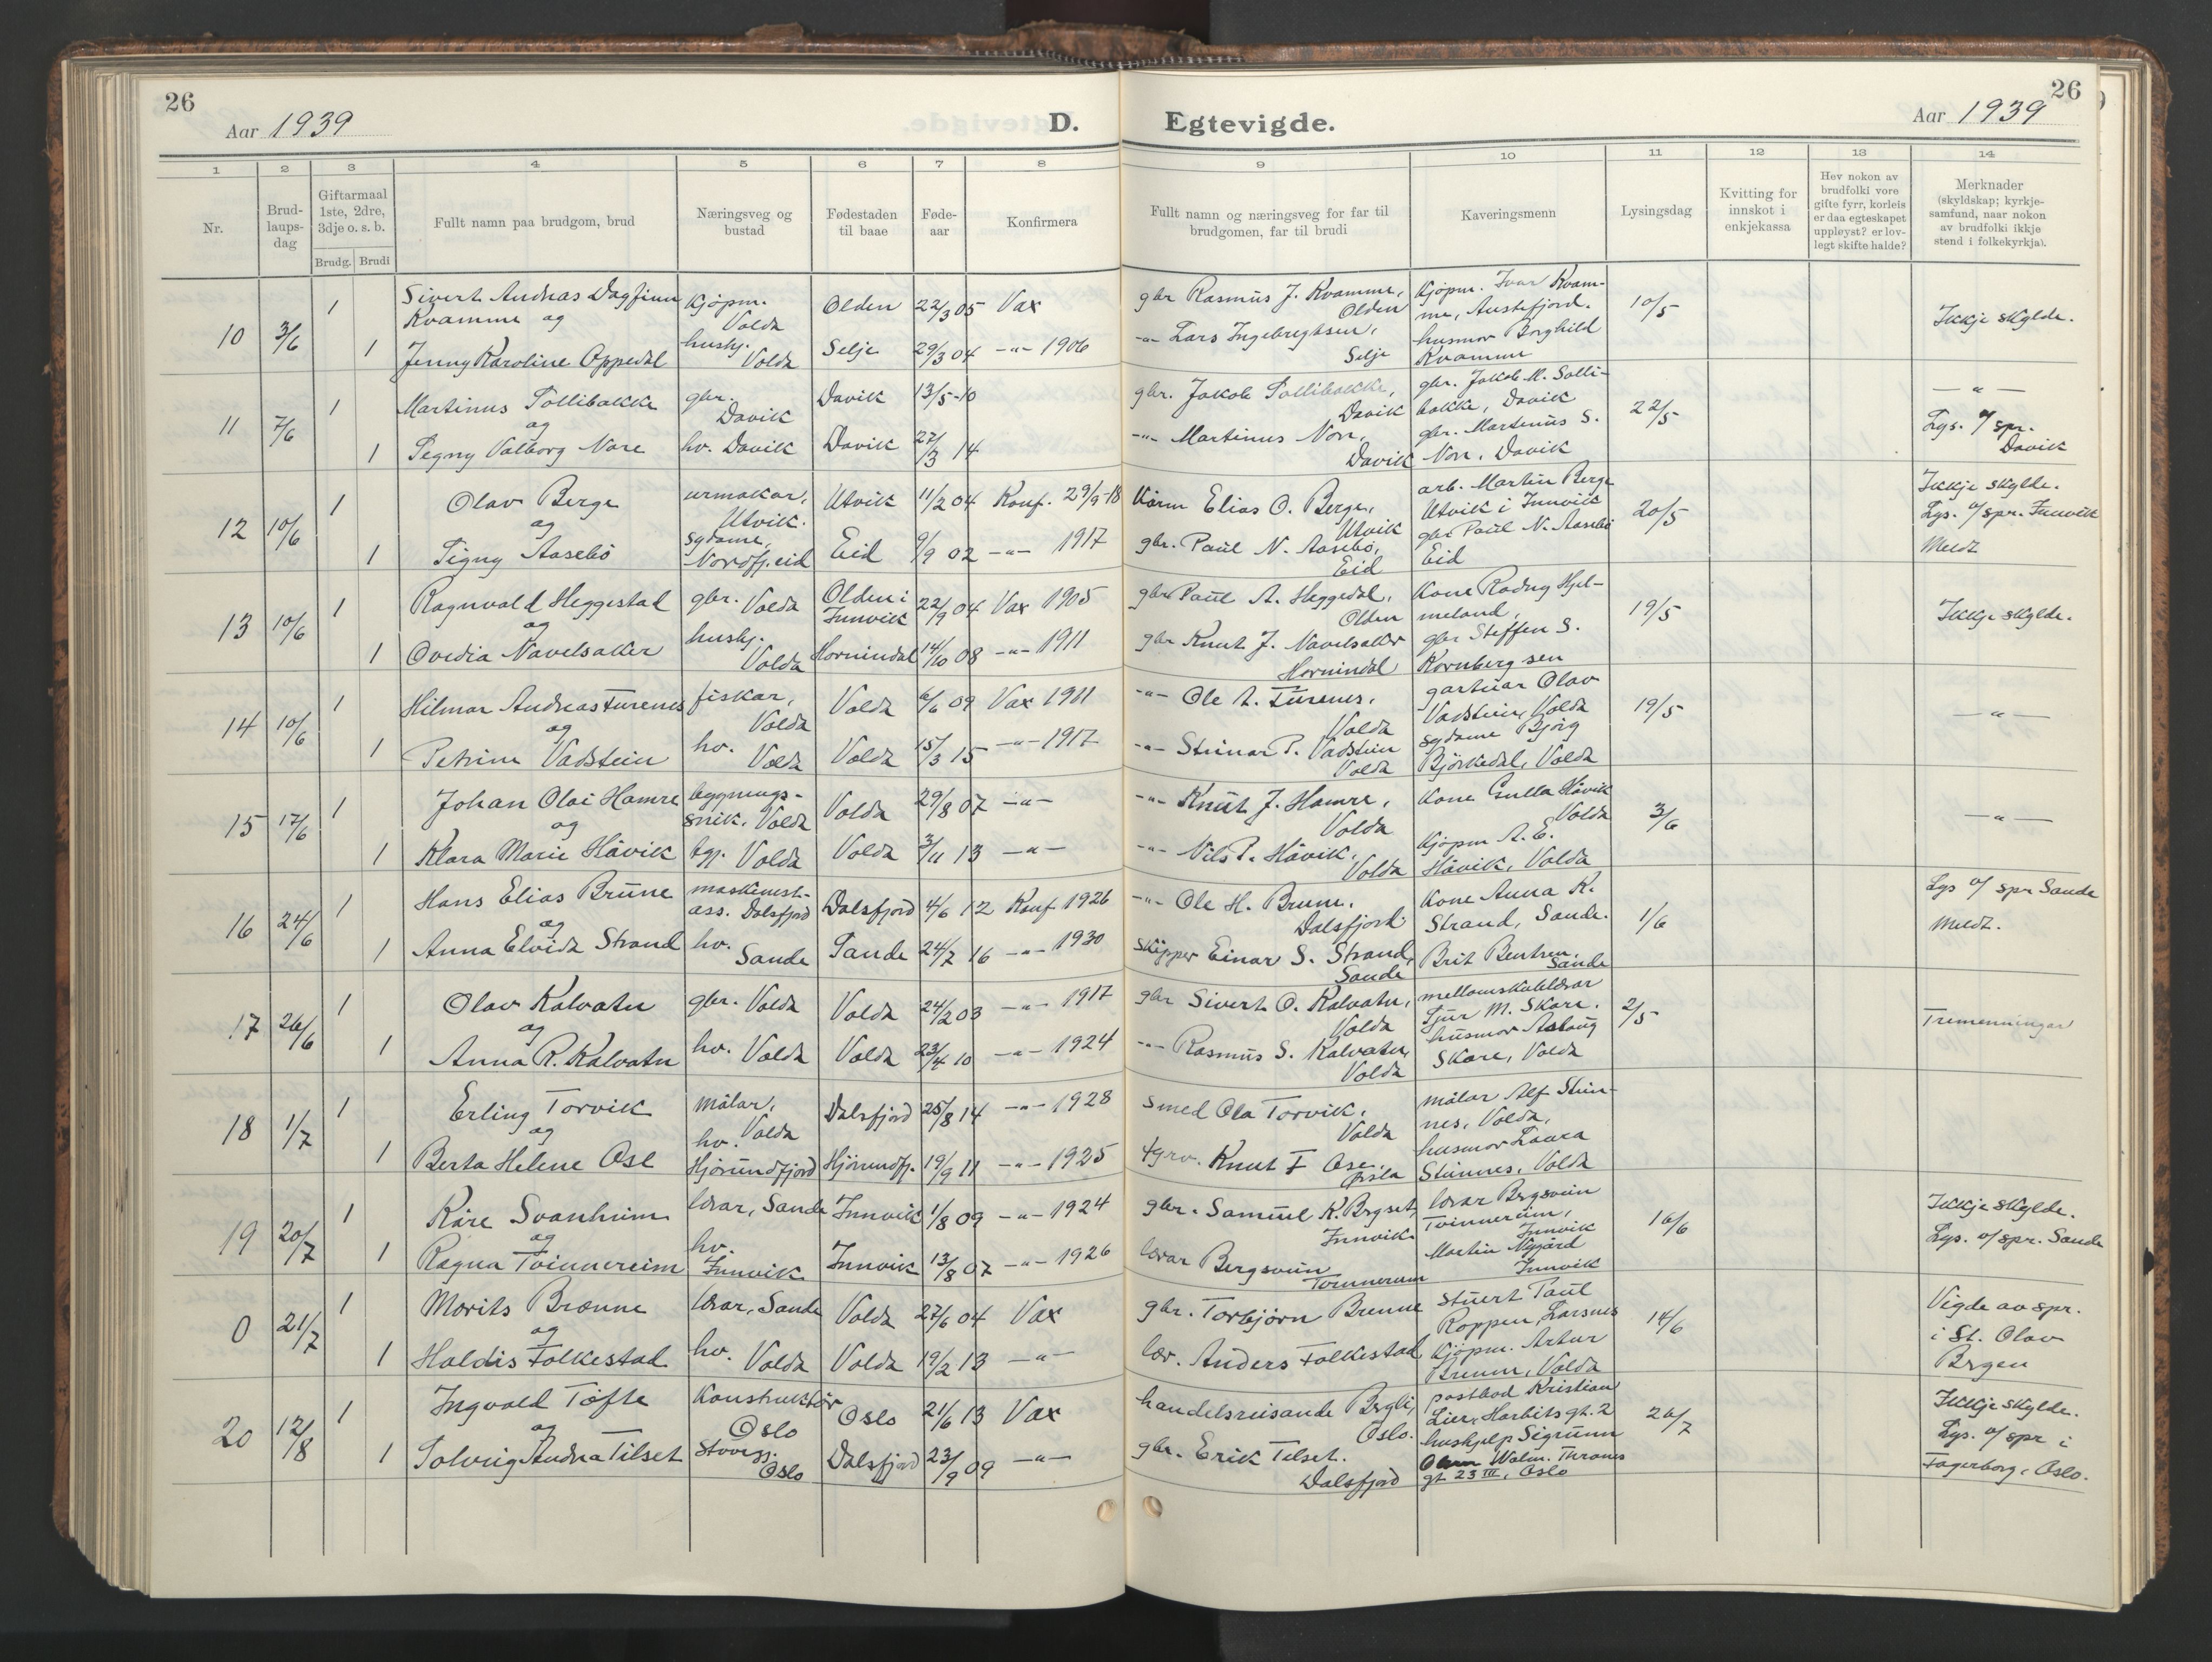 26
Aar 1939
D.
Egtevigde.
26
Aar 1939
1 2 3 4 5 6 7 8 9 10 11 12 13 14
Nr.
Brud-
laups-
dag
Giftarmaal
1ste, 2dre,
3dje o. s. b.
Brudg. Brudi
Fullt namn paa brudgom, brud
Næringsveg og
bustad
Fødestaden
til baae
Føde-
aar
Konfirmera
Fullt namn og næringsveg for far til
brudgomen, far til brudi
Kaveringsmenn
Lysingsdag
Kvitting for
innskot i
enkjekassa
Hev nokon av
brudfolki vore
gifte fyrr, korleis
er daa egteskapet
uppløyst? er lov-
legt skifte halde?
Merknader
(skyldskap; kyrkje-
samfund, naar nokon
av brudfolki ikkje
stend i folkekyrkja).
10 3/6
1 Sivert Andreas Dagfinn
Kvamme og
kjøpm.
Volda
Olden 22/3 05 Vax
1 Jenny Karoline Oppedal
hushj.
Volda
Selje 29/3 04 -"- 1906
gbr Rasmus J. Kvamme,
Olden
-"- Lars Ingebrigtsen,
Selje
Kjøpm. Ivar Kvam-
me, Austefjord.
husmor Borghild
Kvamme
10/5
Ikkje skylde.
11 7/6
1 Martinus Sollibakke
og
gbr.
Davik
Davik 13/5-10
1 Signy Valborg Nore hv. Davik Davik 27/3 14
gbr. Jakob Sollibakke,
Davik
-"- Martinus Nore,
Davik
gbr. Jakob M. Solli-
bakke, Davik
gbr. Martinus S.
Nore, Davik
22/5
-"-
Lys. o/ spr.
Davik
12 10/6
1 Olav Berge
og
urmakar,
Utvik.
Utvik 11/2 04 Konf. 29/9-18
1 Signy Aasebö
sydame,
Nordfj.eid
Eid 9/9 02 -"- 1917
Elias O. Berge,
Utvik
gbr. Paul N. Aasebö,
Eid
arb. Martin Berge
Utvik i Innvik
gbr Paul N. Aasebö
Eid
20/5
Ikkje skylde.
Lys. o/ spr. Innvik
Meldt
13 10/6
1 Ragnvald Heggestad
og
gbr. Volda
Olden i
Innvik
22/9 04 Vax 1905
1 Ovedia Navelsaker
hushj.
Volda
Hornindal 14/10 08 -"- 1911
gbr Paul A. Heggedal,
Olden
gbr Knut J. Navelsaker
Hornindal
Kone Radny Hjel-
meland,
gbr Steffen S.
Kornberg sen
19/5
Ikkje skylde.
14 10/6
1 Hilmar Andreas Furenes
og
fiskar,
Volda
Volda 6/6 09 Vax 1911
1 Petrine Vadstein
hv.
Volda
Volda 15/3 15 -"- 1917
-"- Ole A. Furenes,
Volda
-"- Steinar P. Vadstein
Volda
gartnar Olav
Vadstein, Volda
sydame Bjørg
Björkedal, Volda
19/5
-"-
15 17/6
1 Johan Olai Hamre
og
bygnings-
snik. Volda
Volda 29/8 07 -"-
1 Klara Marie Håvik tj. Volda Volda 3/11 13 -"-
-"- Knut J. Hamre,
Volda
-"- Nils P. Håvik,
Volda
Kone Gulla Håvik
Volda
Kjøpm A. E.
Håvik, Volda
3/6
-"-
16 24/6
1 Hans Elias Brune
og
maskinest-
ass. Dalsfjord
Dalsfjord 4/6 12 Konf 1926
1 Anna Elvida Strand
hv.
Sande
Sande 24/7 16 -"- 1930
-"- Ole H. Brune,
Dalsfjord
skipper Einar S. Strand,
Sande
Kone Anna K.
Strand, Sande.
Brit Bentsen,
Sande
1/6
Lys o/ spr Sande
Meldt.
17 26/6
1 Olav Kalvatn
og
gbr. Volda Volda 24/2 03 -"- 1917
1 Anna R. Kalvatn hv. Volda Volda 23/4 10 -"- 1924
gbr Sivert O. Kalvatn,
Volda
-"- Rasmus S. Kalvatn,
Volda
mellomskulelærar
Sjur M. Skare.
husmor Aslaug
Skare, Volda
2/5
Tremenningar
18 1/7
1 Erling Torvik
og
målar,
Volda
Dalsfjord 25/8 14 -"- 1928
1 Berta Helene Ose
hv.
Hjørundfjord
Hjörundfj. 19/9 11 -"- 1925
smed Ola Torvik,
Volda
Knut F Ose,
Örsta
målar Alf Stein-
nes, Volda,
husmor Laura
Steinnes, Volda
19 20/7
1 Kåre Svanheim
og
lærar, Sande Innvik 1/8 09 -"- 1924
1 Ragna Tvinnereim
hv.
Innvik
Innvik 13/8 07 -"- 1926
gbr. Samuel K. Brgset,
Innvik.
lærar Bergsvein
Tvinnereim
lærar Bergsvein
Tvinnereim,
Innvik
Martin Nygård
Innvik
16/6
Ikkje skylde.
Lys. o/ spr. Sande
0 21/7
1 Morits Brænne
og
lærar, Sande Volda 27/6 04 Vax
1 Haldis Folkestad hv. Volda Volda 19/2 13 -"-
gbr. Torbjörn Brenne
lær. Anders Folkestad
stuert Paul
Roppen, Larsnes
Kjøpm. Artur
Brenne, Volda
14/6
Vigde av spr.
i St. Olav
Brgen
20 12/8
1 Ingvald Tøfte
og
Konstruktör
Oslo
Oslo 21/6 13 Vax
1 Solveig Andrea Tilset
Oslo
Dalsfjord 23/9 09 -"-
handelsreisande Bergli,
Oslo.
gbr. Erik Tilset.
Dalsfjord
postbod Kristian
Lier, Harbits gt. 2
hushjelp Sigrunn
Walm. Thranes
gt 23 III, Oslo
26/7
Ikkje skylde.
Lys. o/ spr i
Fagerborg, Oslo.